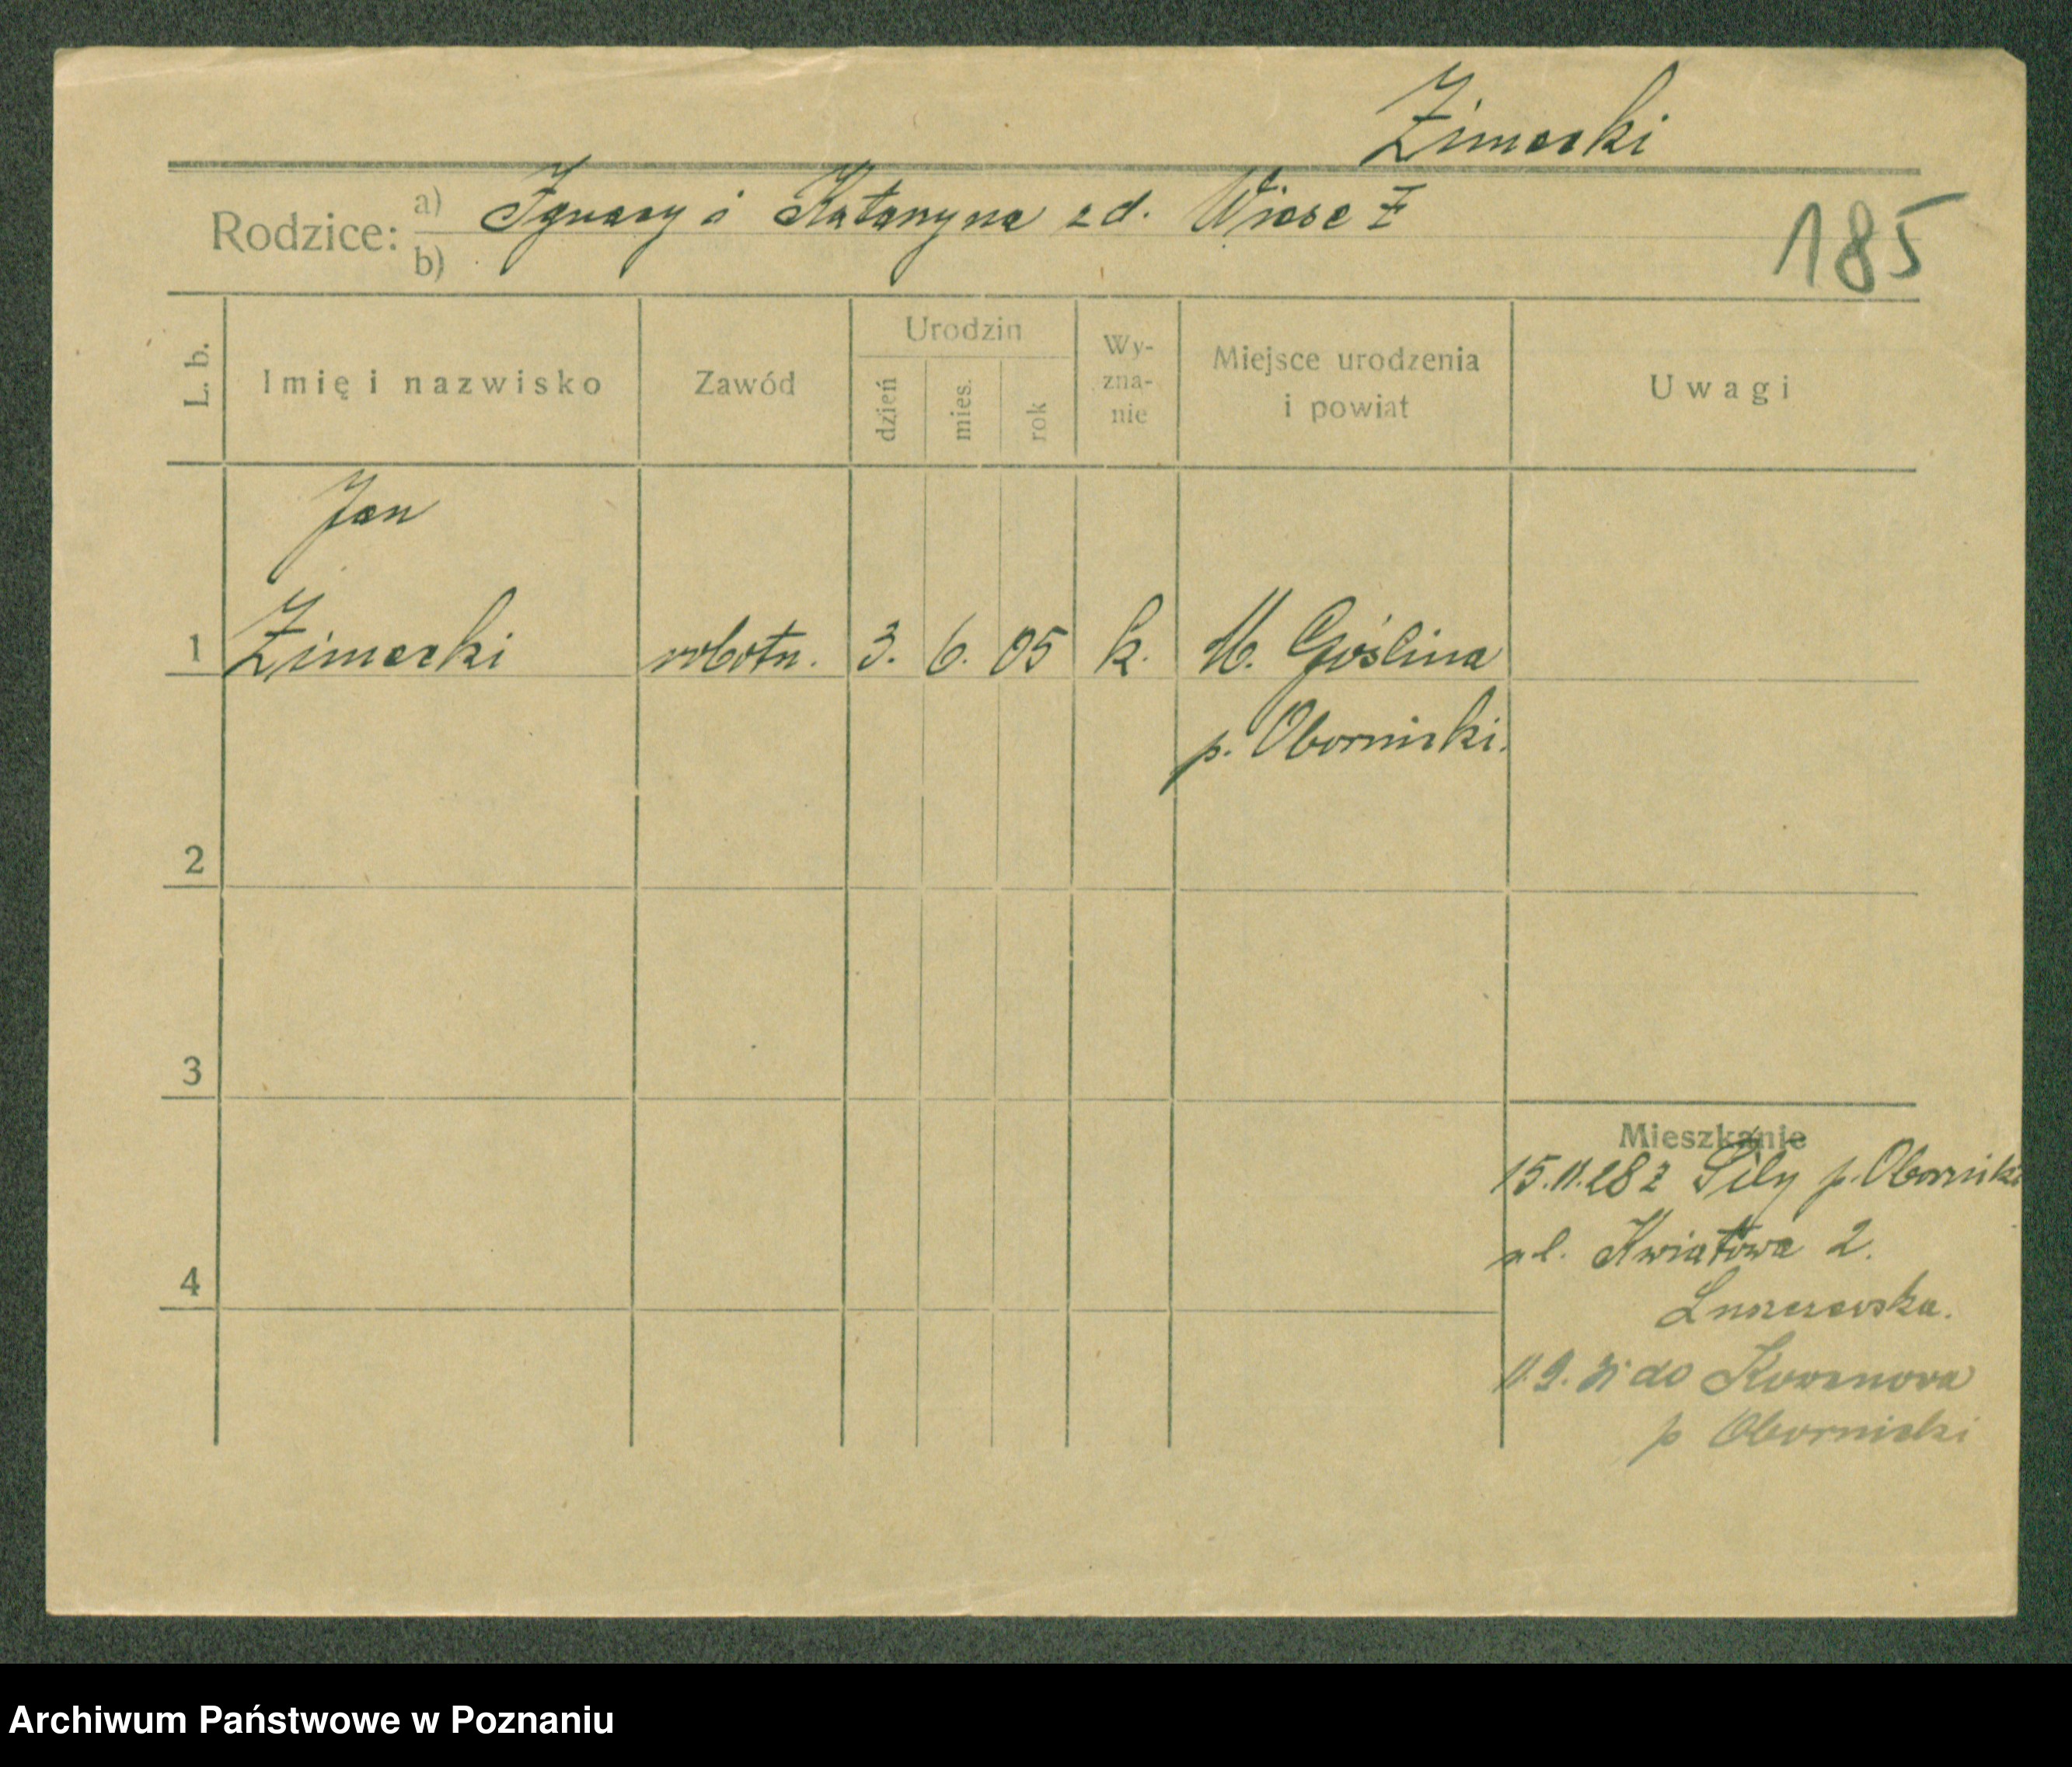 Zimecki
Rodzice: a) Ignacy i Katarzyna zd. Wiese
b)
185
L. b.
Imię i nazwisko
Zawód
Urodzin
dzień
mies.
rok
Wy-
zna-
nie
Miejsce urodzenia
i powiat
Uwagi
Jan
1 Zimecki robotn. 3. 6. 05 k. M. Goślina
p. Obornicki.
2
3
Mieszkanie
15.11.28 z p. Obornicki
4
ul. Kwiatowa 2.
11.9. 31 do Kowanowa
p Obornicki
Archiwum Państwowe w Poznaniu